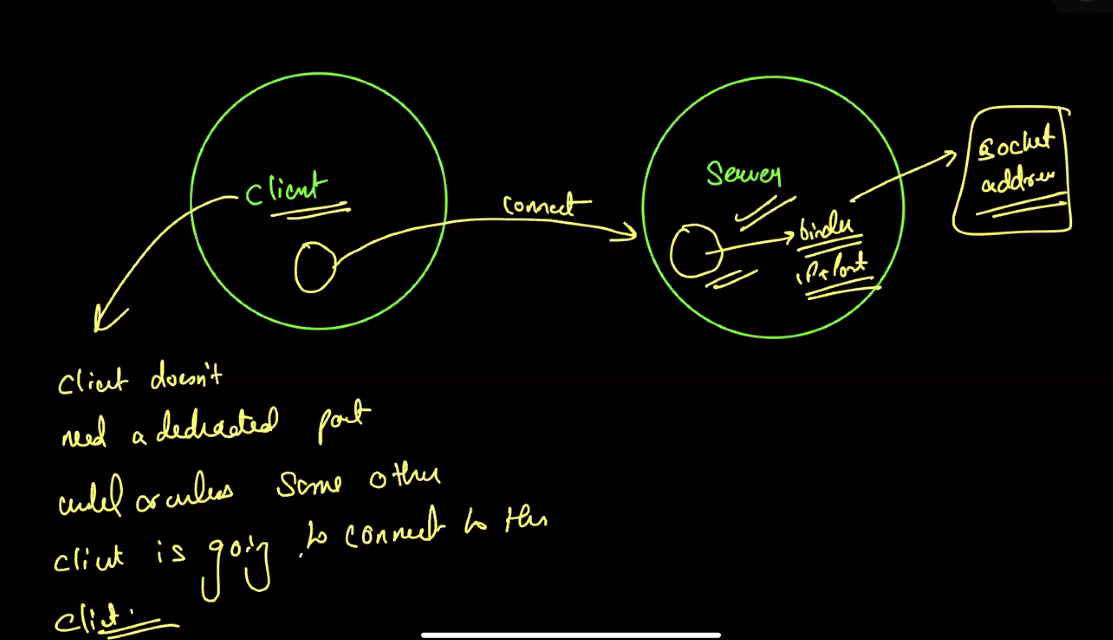 Client
connect
Server
binder
IP+Port
Socket
address
Client doesn't
need a dedicated port
until or unless some other
client is going to connect to this
client.